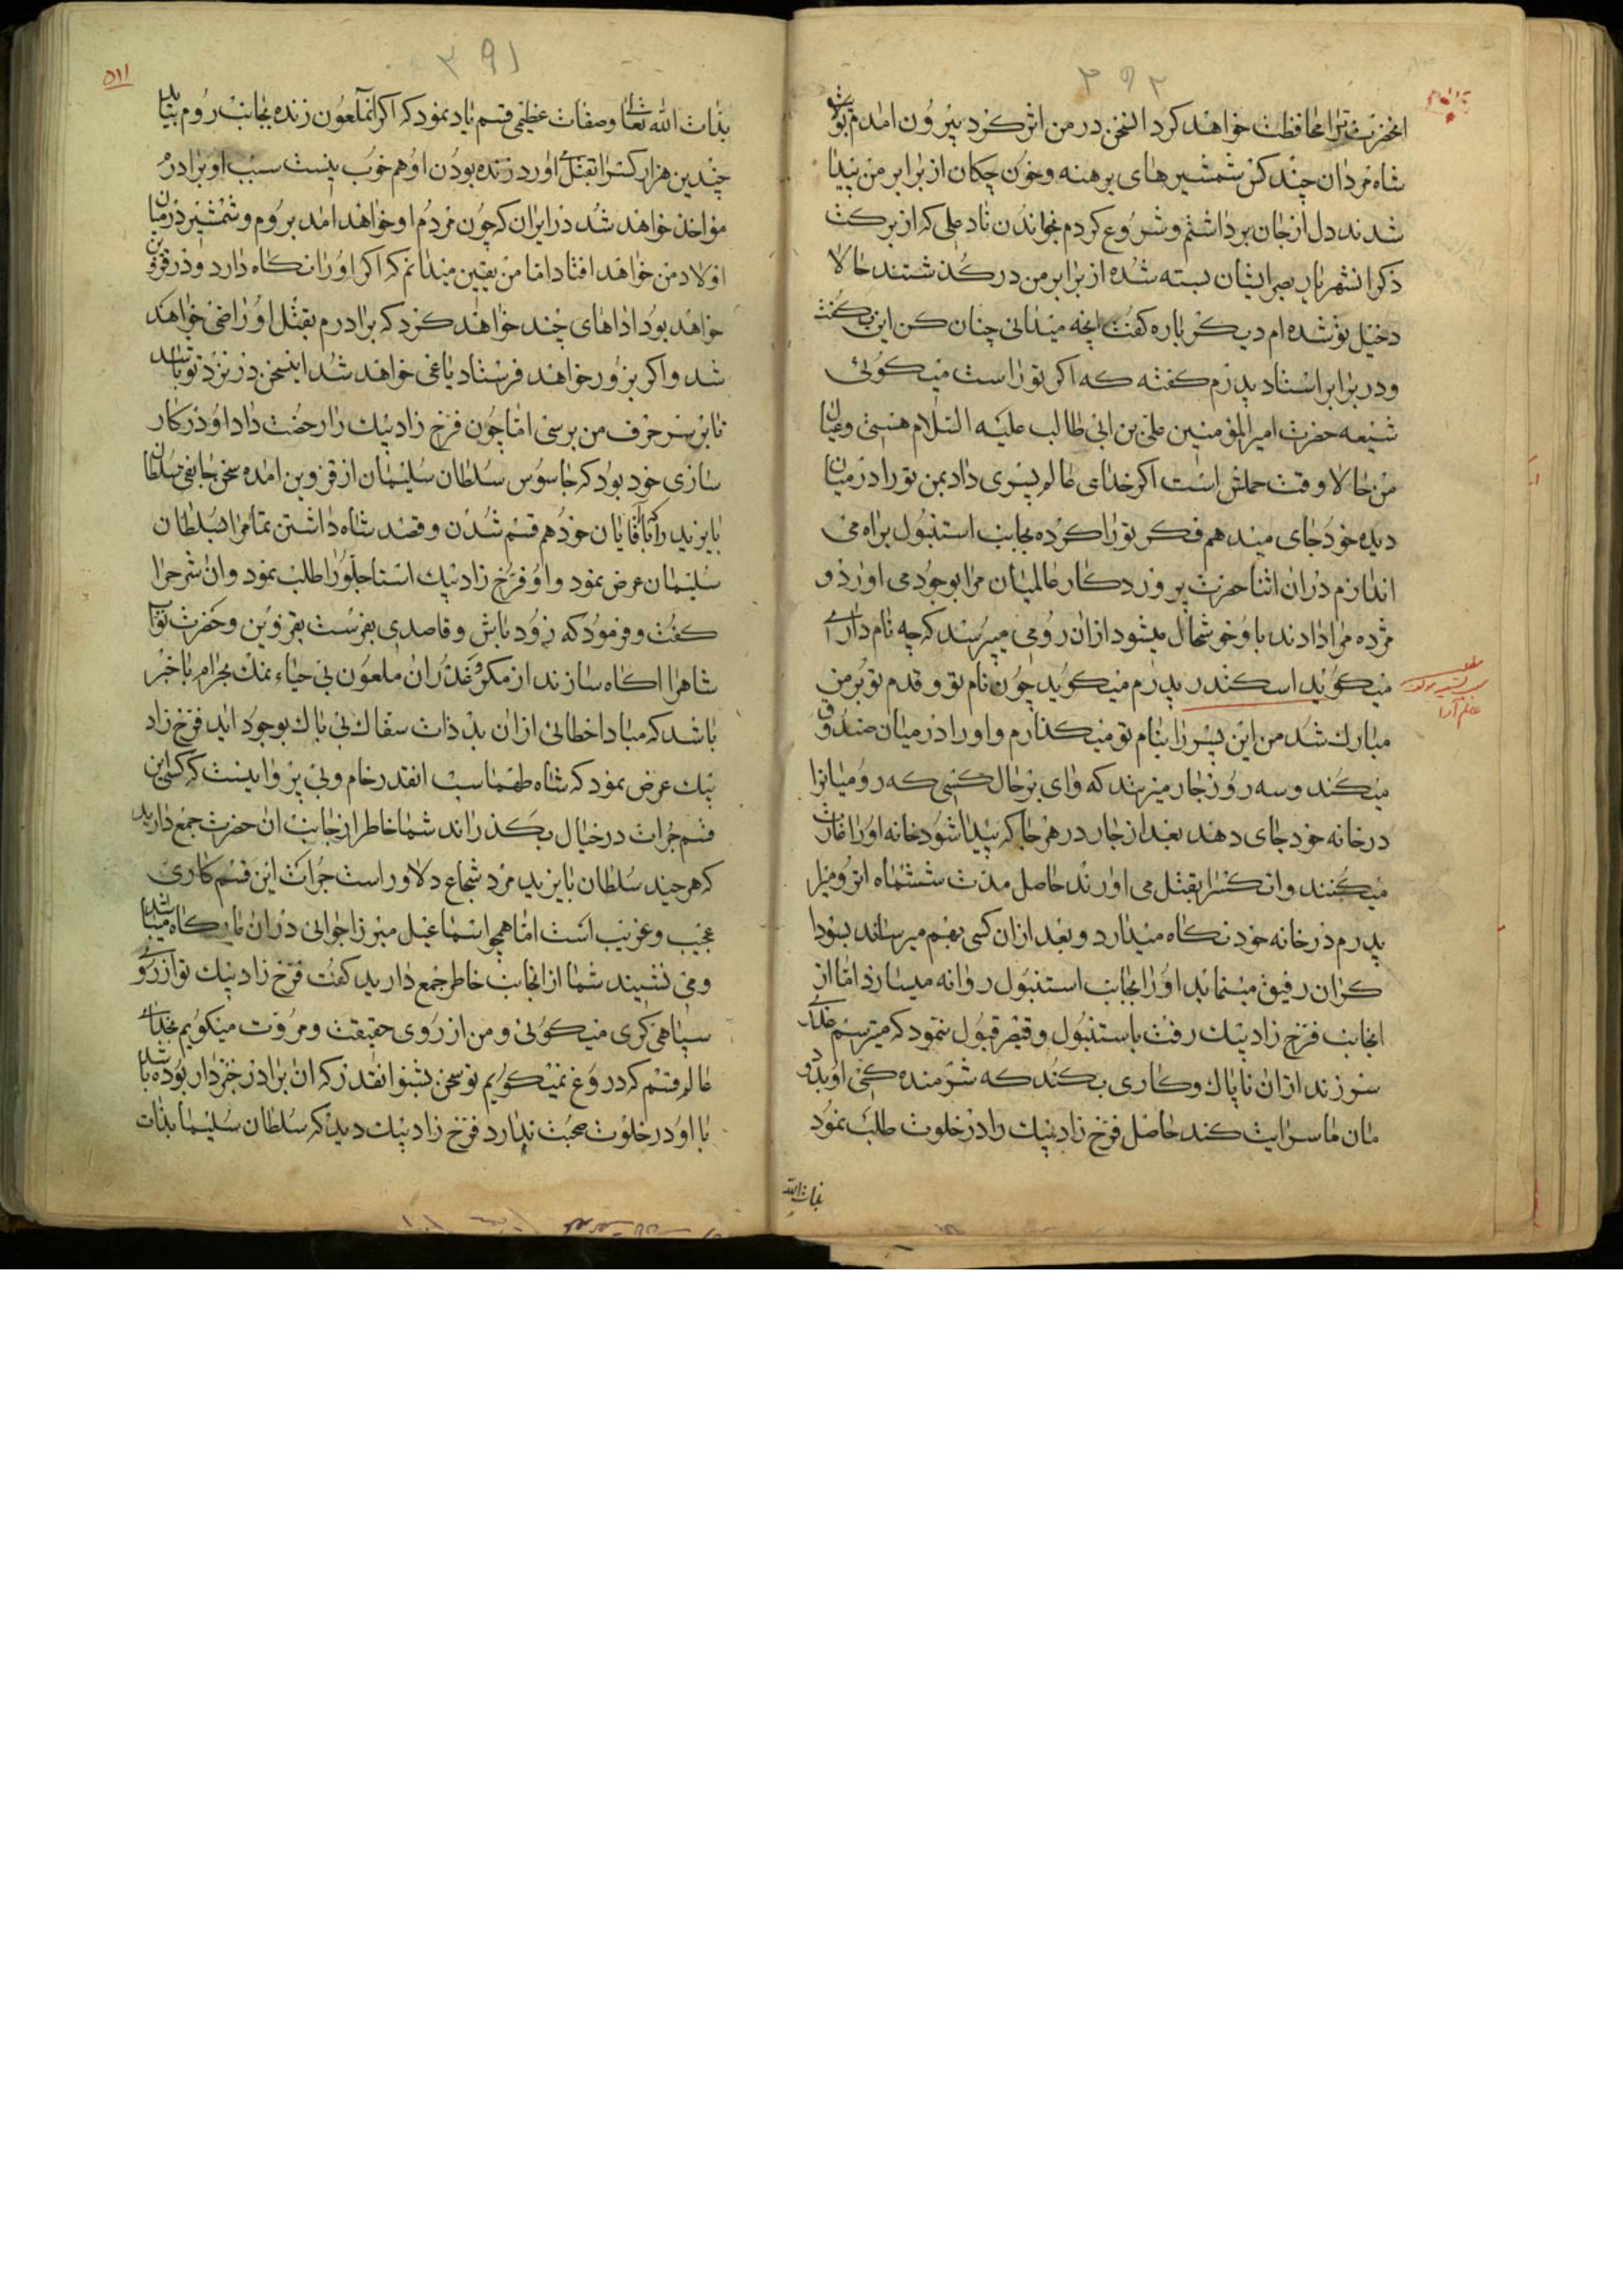 ۳۹۲
انحضرت ترا محافظت خواهد کرد السخن در من اثر کرد بیرون امدم
شاه مردان چند کس شمشیرهای برهنه و خون چکان از برابر من پیدا
شدند دل از جان برداشتم و شروع کردم بخواندن ناد علی که از برکت
ذکر انشهریار بصر ایشان بسته شده از برابر من در گذشتند حالا
دخیل تو شده ام دیگر باره گفت انچه میدانی چنان کن این بگفت
و در برابر استاد پدرم گفته که اگر تو راست میگوئی
شیعه حضرت امیرالمؤمنین علی بن ابی طالب علیه السلام هستی و عیال
من حالا وقت حملش است اگر خدای عالم پسری داد بمن تو را در میان
دیده خود جای میدهم فکر تو را کرده بجانب استنبول براه می
اندازم دران اثنا حضرت پروردکار عالمیان مرا بوجود می اورد و
مژده مرا دادند باو خوشحال میشود ازان رومی میپرسد که چه نام داری
میگوید اسکندر پدرم میگوید چون نام تو و قدم تو بر من
مبارک شد من این پسر را بنام تو میگذارم و او را در میان صندوق
میکند و سه روز جار میزنند که وای بر حال کسی که رومیانرا
در خانه خود جای دهند بعد از جار در هر جا که پیدا شود خانه او را غارت
میکنند و ان کسرا بقتل می اورند حاصل مدت ششماه انرومیرا
پدرم در خانه خود نگاه میدارد و بعد ازان کسی بهم میرساند بسودا
کران رفیق مینماید او را بجانب استنبول روانه میسازد اما از
انجانب فرخ زاد بیک رفت باستنبول و قیصر قبول ننمود که میترسم
سر زند ازان ناپاک و کاری بکند که شرمنده کی او
مان ما سرایت کند حاصل فرخ زاد بیک را در خلوت طلب نمود
بذات الله
۳۹۱
۵۱۱
بذات الله تعالی و صفات عظیمی قسم یاد نمود که اگر انملعون زنده بجانب روم بیاید
چندین هزار کس را بقتل اورد زنده بودن او هم خوب نیست سبب او برادر
مواخذ خواهد شد در ایران که چون مردم او خواهد امد بروم و شمشیر در میان
اولاد من خواهد افتاد اما من یقین میدانم که اگر او را نگاه دارد و در قزوین
خواهد بود اداهای چند خواهد کرد که برادرم بقتل او راضی خواهد
شد و اگر بزور خواهد فرستاد یاغی خواهد شد اینسخن در نزد تو باشد
تا بر سر حرف من برسی اما چون فرخ زاد بیک را رخصت داد او در کار
سازی خود بود که جاسوس سلطان سلیمان از قزوین امده سخن یاغی سلطان
بایزید را با اقایان خود هم قسم شدن و قصد شاه داشتن تمام را بسلطان
سلیمان عرض نمود و او فرخ زاد بیک استاجلو را طلب نمود و ان شرح را
گفت و فرمود که زود باش و قاصدی بفرست بقزوین و حضرت نواب
شاهرا اگاه سازند از مکر و غدر ان ملعون بی حیاء نمک بحرام باخبر
باشد که مبادا خطائی ازان بد ذات سفاک بی باک بوجود اید فرخ زاد
بیک عرض نمود که شاه طهماسب انقدر خام و بی پروا نیست که کسی این
قسم جرات در خیال بگذراند شما خاطر از جانب ان حضرت جمع دارید
که هر چند سلطان بایزید مرد شجاع دلاور است جرات این قسم کاری
عجیب و غریب است اما همچو اسماعیل میرزا جوانی دران بارگاه میباشد
و می نشیند شما از انجانب خاطر جمع دارید گفت فرخ زاد بیک تو از روی
سپاهی گری میگوئی و من از روی حقیقت و مروت میگویم بخدای
عالم قسم که دروغ نمیگویم تو سخن بشنو انقدر که ان برادر خبردار بوده باشد
با او در خلوت صحبت ندارد فرخ زاد بیک دید که سلطان سلیمان بذات